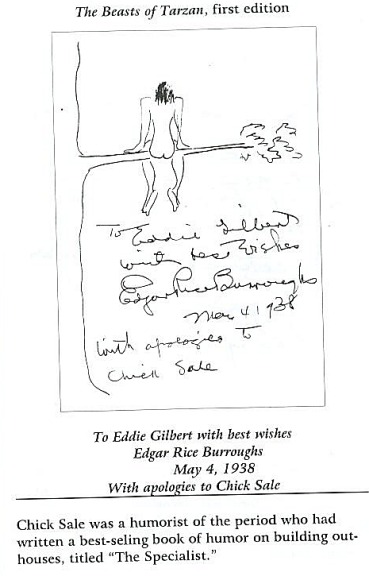 The Beasts of Tarzan, first edition
To Eddie Gilbert
with best wishes
Edgar Rice Burroughs
May 4 1938
With apologies to
Chick Sale
To Eddie Gilbert with best wishes
Edgar Rice Burroughs
May 4, 1938
With apologies to Chick Sale
Chick Sale was a humorist of the period who had
written a best-seling book of humor on building out-
houses, titled "The Specialist."